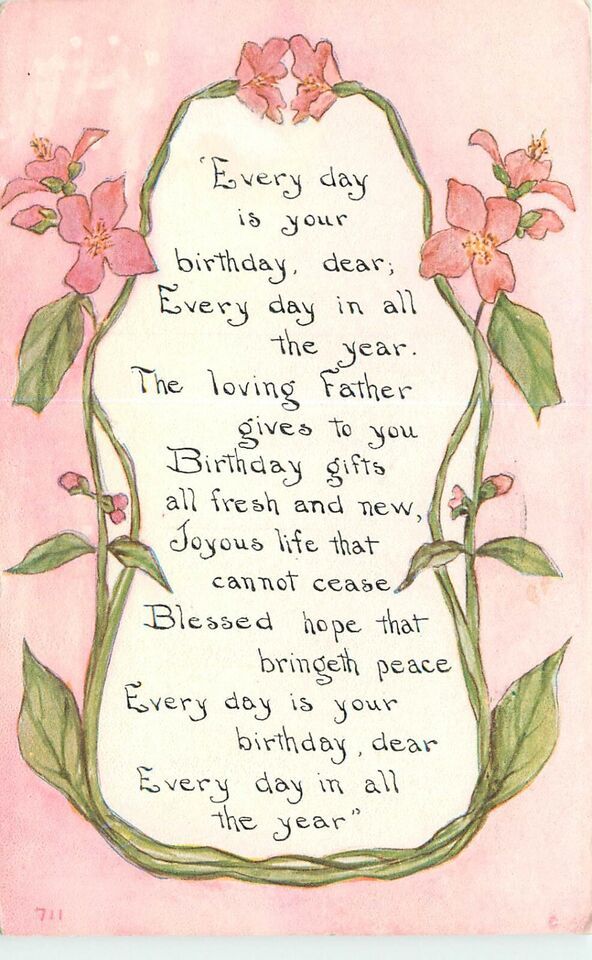 "Every day
is your
birthday, dear;
Every day in all
the year.
The loving Father
gives to you
Birthday gifts
all fresh and new,
Joyous life that
cannot cease,
Blessed hope that
bringeth peace
Every day is your
birthday, dear
Every day in all
the year"
711